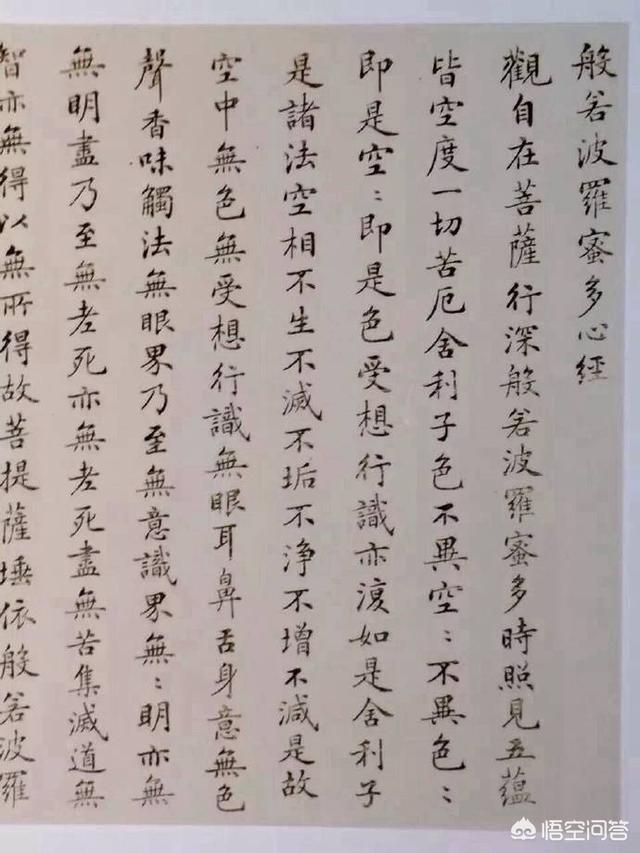 般若波羅蜜多心經
觀自在菩薩行深般若波羅蜜多時照見五蘊
皆空度一切苦厄舍利子色不異空〻不異色〻
即是空〻即是色受想行識亦復如是舍利子
是諸法空相不生不滅不垢不淨不增不減是故
空中無色無受想行識無眼耳鼻舌身意無色
聲香味觸法無眼界乃至無意識界無〻明亦無
無明盡乃至無老死亦無老死盡無苦集滅道無
智亦無得以無所得故菩提薩埵依般若波羅
悟空问答